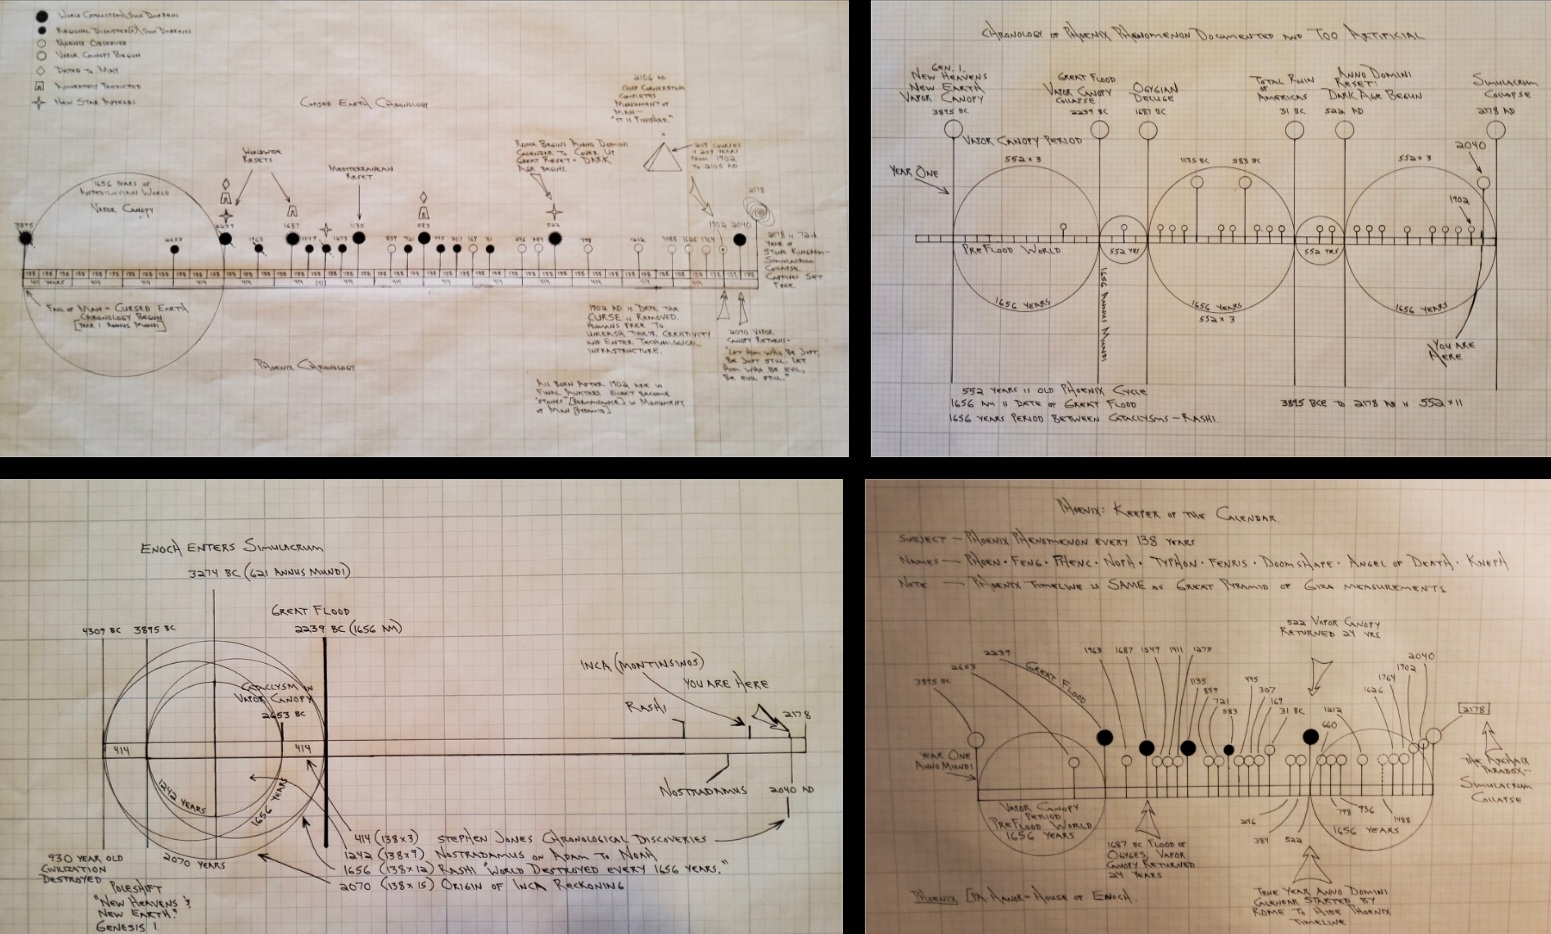 World Cataclysm/Sun Darkens
Regional Disaster(s)/Sun Darkens
Phoenix Observed
Vapor Canopy Begun
Dated to May
Accurately Predicted
New Star Appears
Cursed Earth Chronology
2106 AD
Chief Cornerstone
Completes
Monument of
Man -
"It is Finished"
Rome Begins Anno Domini
Calendar to Cover Up
Great Reset - Dark
Age Begins
203 Courses
Years
From 1902
to 2105 AD
Worldwide
Resets
Mediterranean
Reset
1656 Years of
Antediluvian World
Vapor Canopy
3895
2653
2239
1963
1687
1411
1273
1135
721
583
445
307
169
31
522
1902
2040
2178
414 Years
Fall of Man - Cursed Earth
Chronology Begins
[Year 1 Annus Mundi]
Phoenix Chronology
1902 AD is Date the
Curse is Removed.
Humans Free to
Unleash Their Creativity
and Enter Technological
Infrastructure.
2040 Vapor
Canopy Returns -
"Let Him Who Be Just,
Be Just Still. Let
Him Who Be Evil,
Be Evil Still."
2178 is
Year of
Simulacrum
Collapse
Captives Set
Free.
All Born After 1902 are in
Final Avatars Elect Become
"Stones" [Permanence] in Monument
of Man [Pyramid]
Chronology of Phoenix Phenomenon Documented and Too Artificial
Gen. 1
New Heavens
New Earth
Vapor Canopy
3895 BC
Great Flood
Vapor Canopy
Collapse
2239 BC
Ogygian
Deluge
1687 BC
Total Ruin
of
Americas
31 BC
Anno Domini
Reset!
Dark Age Begun
522 AD
Simulacrum
Collapse
2178 AD
Vapor Canopy Period
552 x 3
1135 BC
583 BC
552 x 3
2040
1902
Year One
PreFlood World
552 yrs
552 yrs
1656 Years
1656 Annus Mundi
1656 Years
552 x 3
1656 Years
You Are
Here
552 Years is Old Phoenix Cycle
1656 AM is Date of Great Flood
1656 Years Period Between Cataclysms - Rashi
3895 BCE to 2178 AD is 552 x 11
Enoch Enters Simulacrum
3274 BC (621 Annus Mundi)
Great Flood
2239 BC (1656 AM)
4309 BC
3895 BC
Cataclysm in
Vapor Canopy
2653 BC
414
414
1242 Years
1656 Years
2070 Years
Inca (Montinsinos)
You Are Here
Rashi
2178
Nostradamus
2040 AD
414 (138x3) Stephen Jones Chronological Discoveries
1242 (138x9) Nostradamus on Adam to Noah
1656 (138x12) Rashi "World Destroyed Every 1656 Years."
2070 (138x15) Origin of Inca Reckoning
930 Year Old
Civilization
Destroyed
Poleshift
"New Heavens &
New Earth."
Genesis 1
Phoenix: Keeper of the Calendar
Subject - Phoenix Phenomenon Every 138 Years
Names - Phoen · Feng · Phenc · Noph · Typhon · Fenris · Doomshape · Angel of Death · Kneph
Note - Phoenix Timeline is Same as Great Pyramid of Giza Measurements
522 Vapor Canopy
Returned 24 yrs
3895 BC
2653
2239
Great Flood
1963
1687
1549
1411
1273
1135
859
721
583
445
307
169
31 BC
1212
660
1626
1764
1902
2040
2178
Year One
Anno Mundi
Vapor Canopy
Period
PreFlood World
1656 Years
1687 BC Flood of
Ogyges, Vapor
Canopy Returned
24 Years
246
384
522
798
936
1488
1656 Years
The Archaix
Paradox -
Simulacrum
Collapse
True Year Anno Domini
Calendar Started by
Rome to Hide Phoenix
Timeline
Phoenix [Pa-Hanok - House of Enoch.